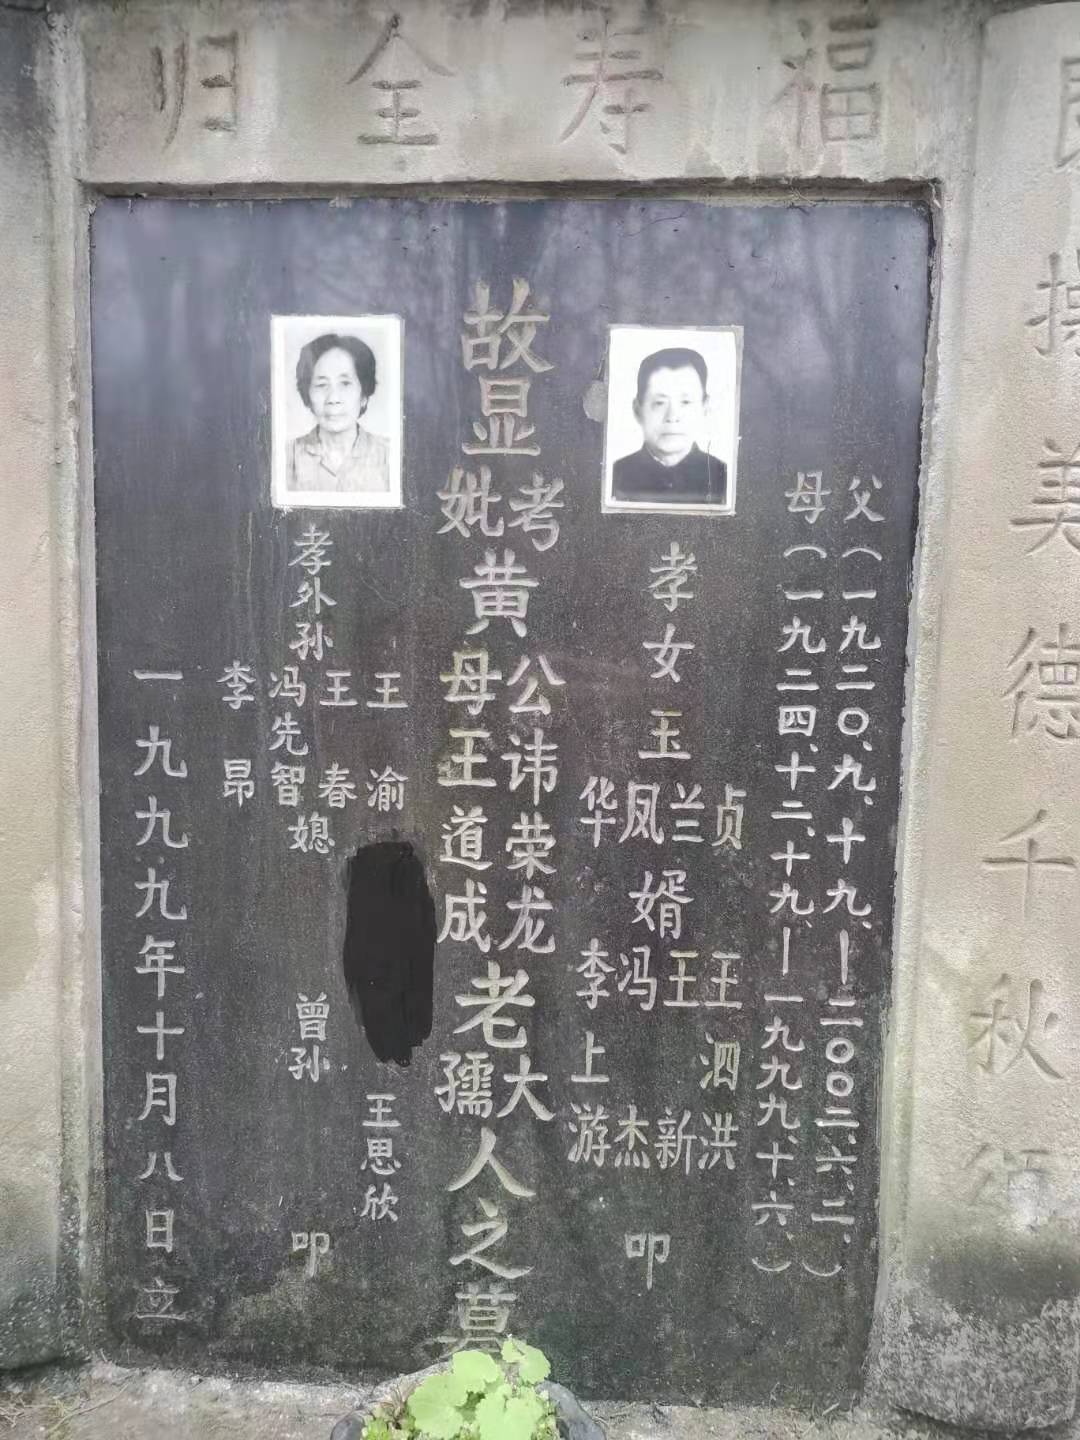 福寿全归
操美德千秋
父（一九二〇、九、十九、—二〇〇二、六、二、）
母（一九二四、十二、十九、—一九九九、十、六、）
孝女玉
贞
兰
凤
华
婿
王泗洪
王新
冯杰
李上游
叩
故显
考
妣
黄
公讳荣龙
母王道成
老
大
孺
人之墓
孝外孙
王渝
王春
冯先智
李昂
媳
曾孙
王思欣
叩
一九九九年十月八日立